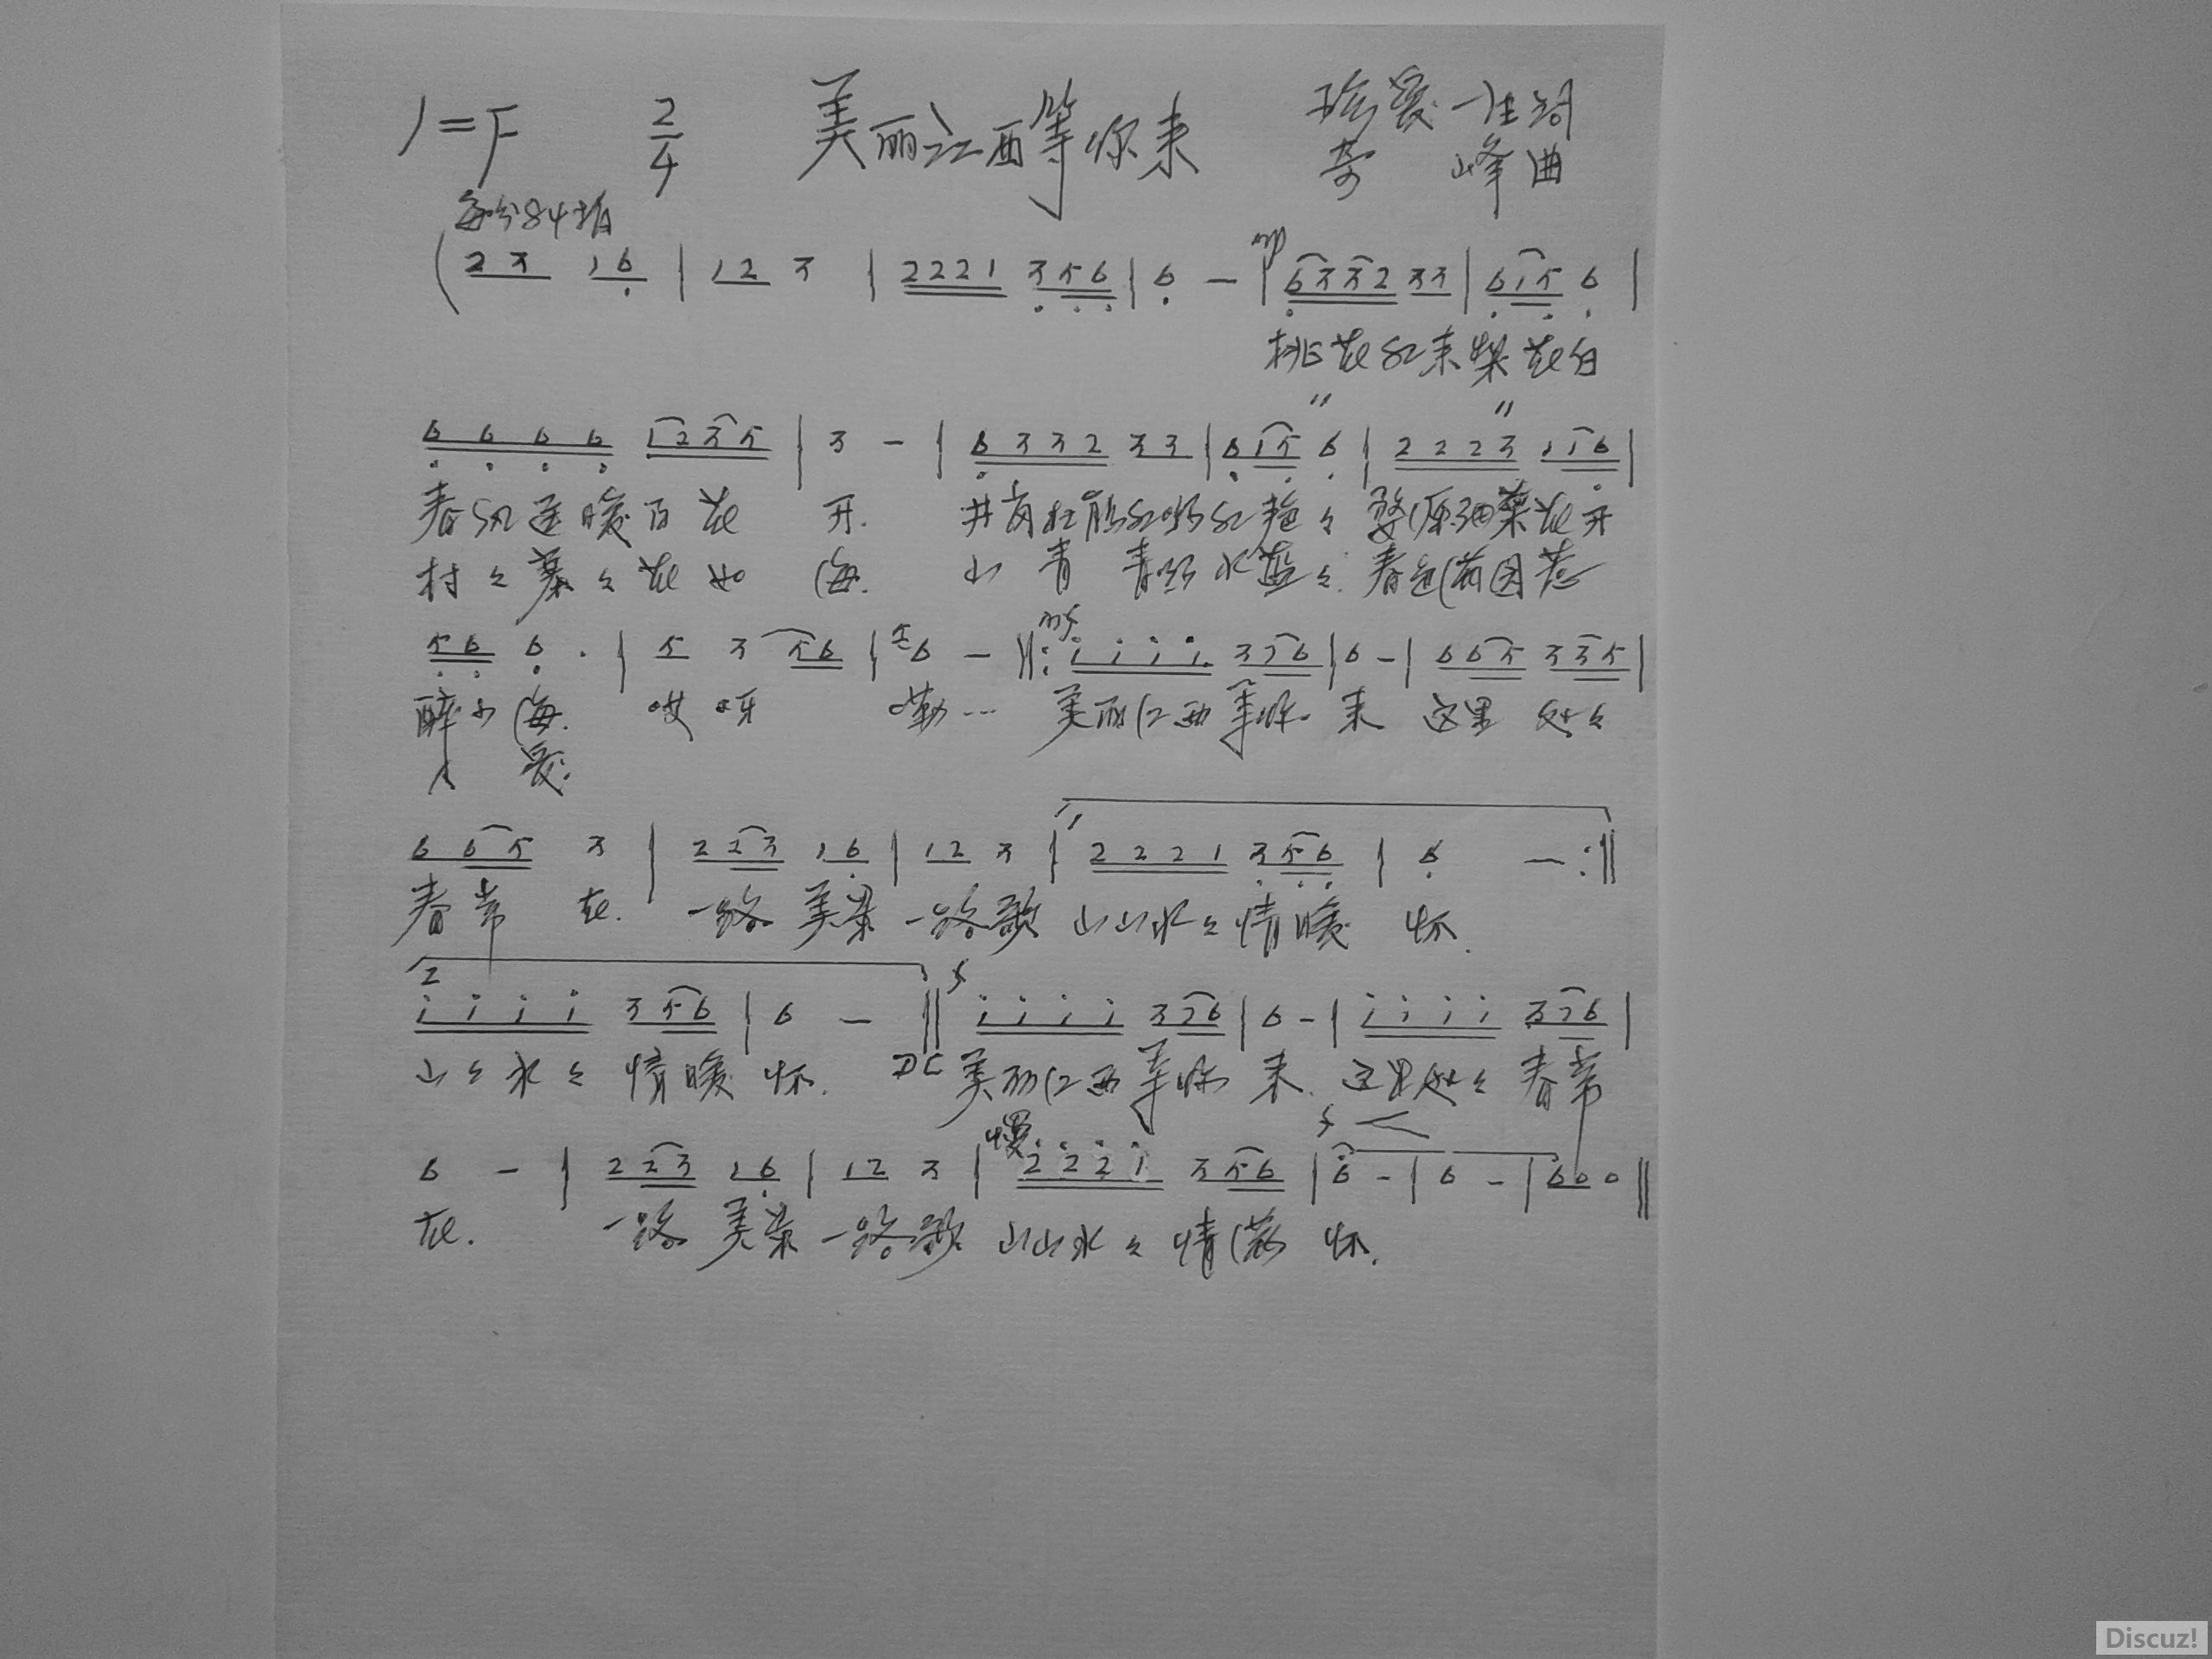 1=F 2/4 美丽江西等你来 珍爱一生词
奇峰曲
每分84拍
(2 3 1 6 | 1 2 3 | 2 2 2 1 3 5 6 | 6 - | mp 6 3 3 2 3 3 | 6 1 5 6 |
桃花红来梨花白
〃 〃
6 6 6 6 1 2 3 5 | 3 - | 6 3 3 2 3 3 | 6 1 5 6 | 2 2 2 3 1 1 6 |
春风送暖百花 开. 井岗杜鹃红哟红艳々 婺源油菜花开
村々寨々花如 海. 山青 青哟水蓝々. 春色满园惹
5 6 6 · | 5 3 5 6 | 5 6 - ‖: mf i i i i 3 7 6 | 6 - | 6 6 5 3 3 5 |
醉山海. 哎呀 嘞… 美丽江西等你 来 这里 处々
人 爱.
6 6 5 3 | 2 2 3 1 6 | 1 2 3 | 1 2 2 2 1 3 5 6 | 6 - :‖
春常 在. 一路美景一路歌 山山水々情暖 怀.
2 i i i i 3 5 6 | 6 - ‖ f i i i i 3 7 6 | 6 - | i i i i 3 7 6 |
山々水々 情暖 怀. DC 美丽江西等你 来. 这里处々春常
慢 f <
6 - | 2 2 3 1 6 | 1 2 3 | 2 2 2 i 3 5 6 | 6 - | 6 - | 6 0 0 ‖
在. 一路美景一路歌 山山水々情满 怀.
Discuz!